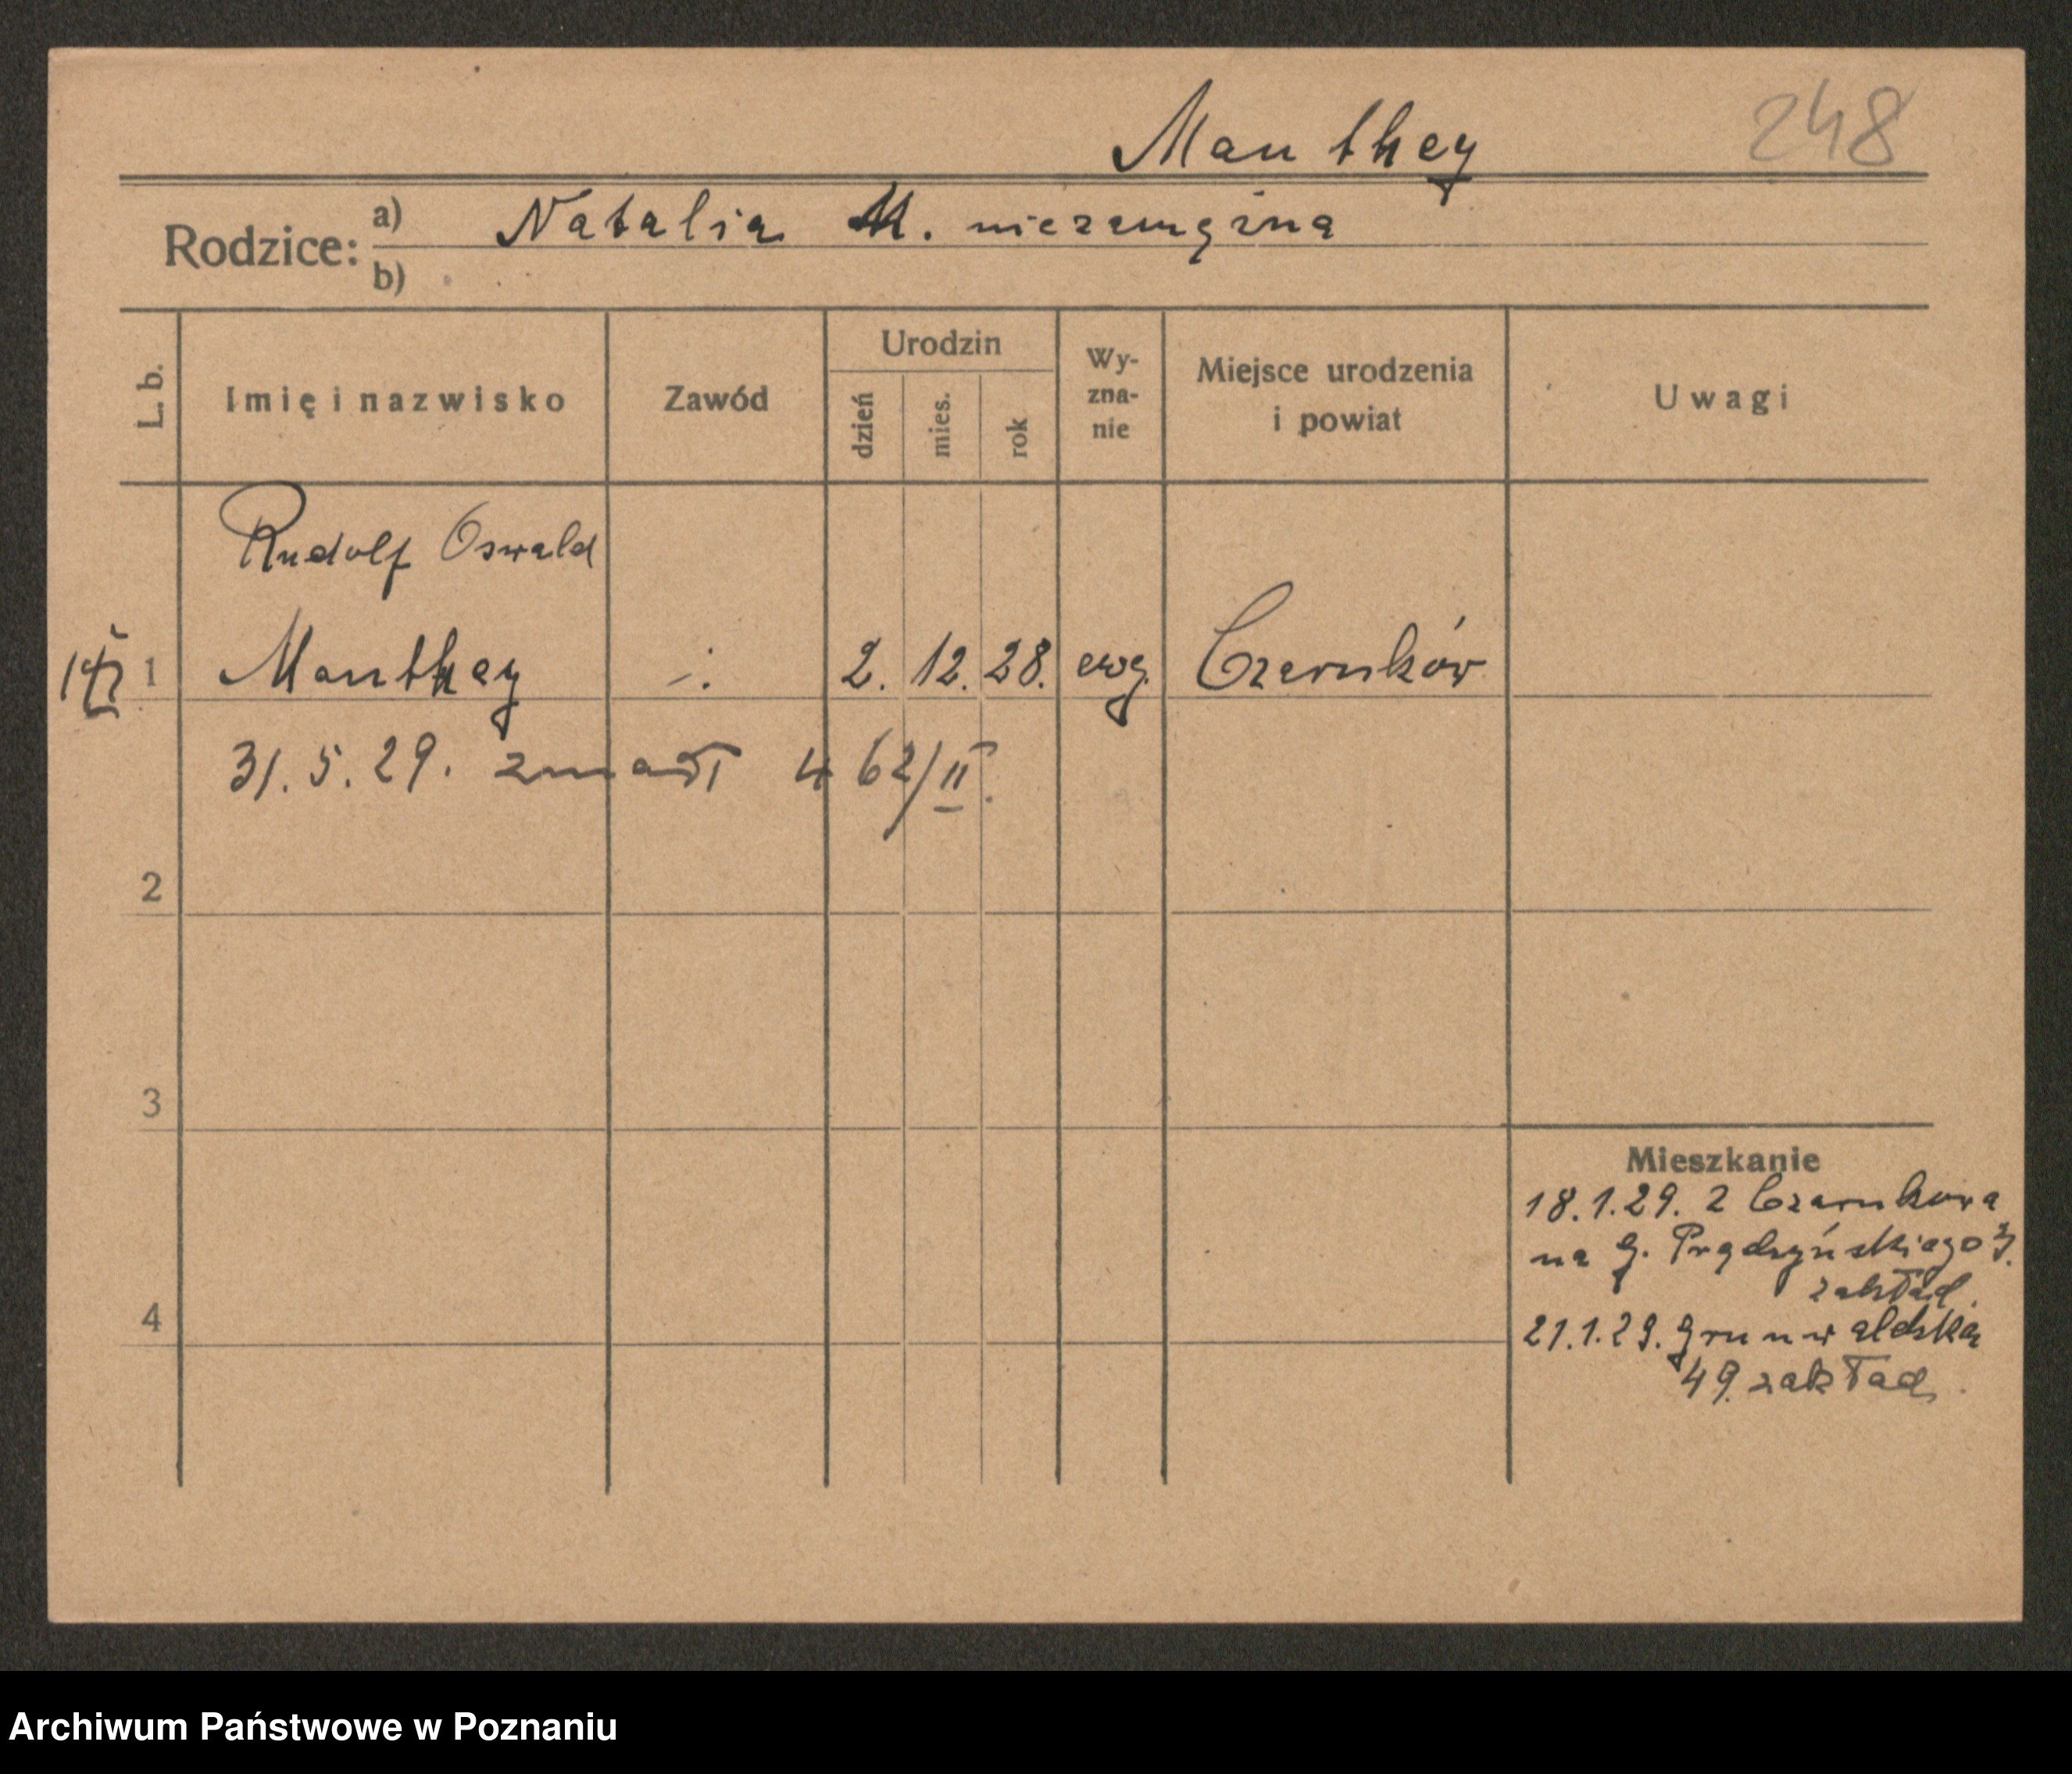 Manthey 248
Rodzice: a) Natalia M. niezamężna
b)
L. b.
Imię i nazwisko
Zawód
Urodzin
dzień
mies.
rok
Wy-
zna-
nie
Miejsce urodzenia
i powiat
Uwagi
Rudolf Oswald
1 Manthey -:. 2. 12. 28. ewg. Czarnków
31.5.29. zmarł 462/II.
2
3
4
Mieszkanie
18.1.29. z Czarnkowa
na G. Prądzyńskiego 3.
zakład.
21.1.29. Grunwaldska
49. zakład.
Archiwum Państwowe w Poznaniu